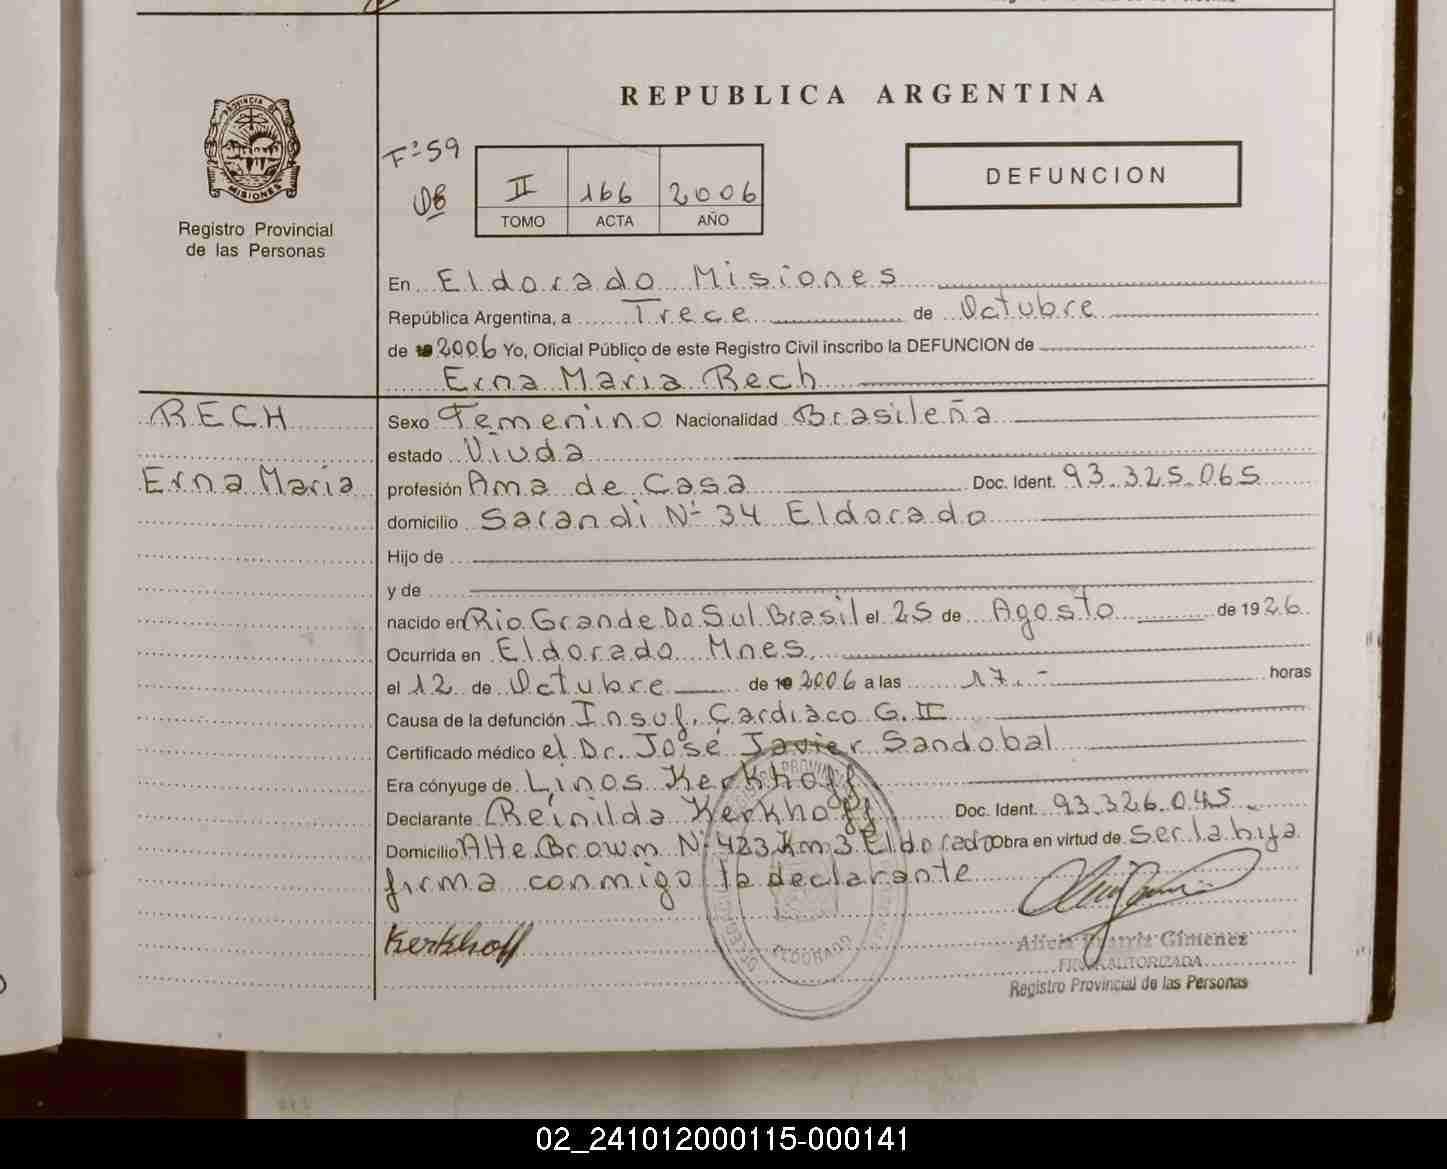 REPUBLICA ARGENTINA
PROVINCIA DE
MISIONES
Registro Provincial
de las Personas
Fº 59
II 166 2006
TOMO ACTA AÑO
DEFUNCION
En Eldorado Misiones
República Argentina, a Trece de Octubre
de 19 2006 Yo, Oficial Público de este Registro Civil inscribo la DEFUNCION de
Erna Maria Rech
RECH
Erna Maria
Sexo Femenino Nacionalidad Brasileña
estado Viuda
profesión Ama de Casa Doc. Ident. 93.325.065
domicilio Sarandi Nº 34 Eldorado
Hijo de
y de
nacido en Rio Grande Do Sul Brasil el 25 de Agosto de 1926
Ocurrida en Eldorado Mnes
el 12 de Octubre de 19 2006 a las 17.- horas
Causa de la defunción Insuf. Cardiaco G. III
Certificado médico el Dr. José Javier Sandobal
Era cónyuge de Linos Kerkhoff
Declarante Reinilda Kerkhoff Doc. Ident. 93.326.045
Domicilio Alte Brown Nº 423 Km 3 Eldorado Obra en virtud de ser la hija
firma conmigo la declarante
Kerkhoff
ELDORADO
Alicia Beatriz Gimenez
FIRMA AUTORIZADA
Registro Provincial de las Personas
02_241012000115-000141